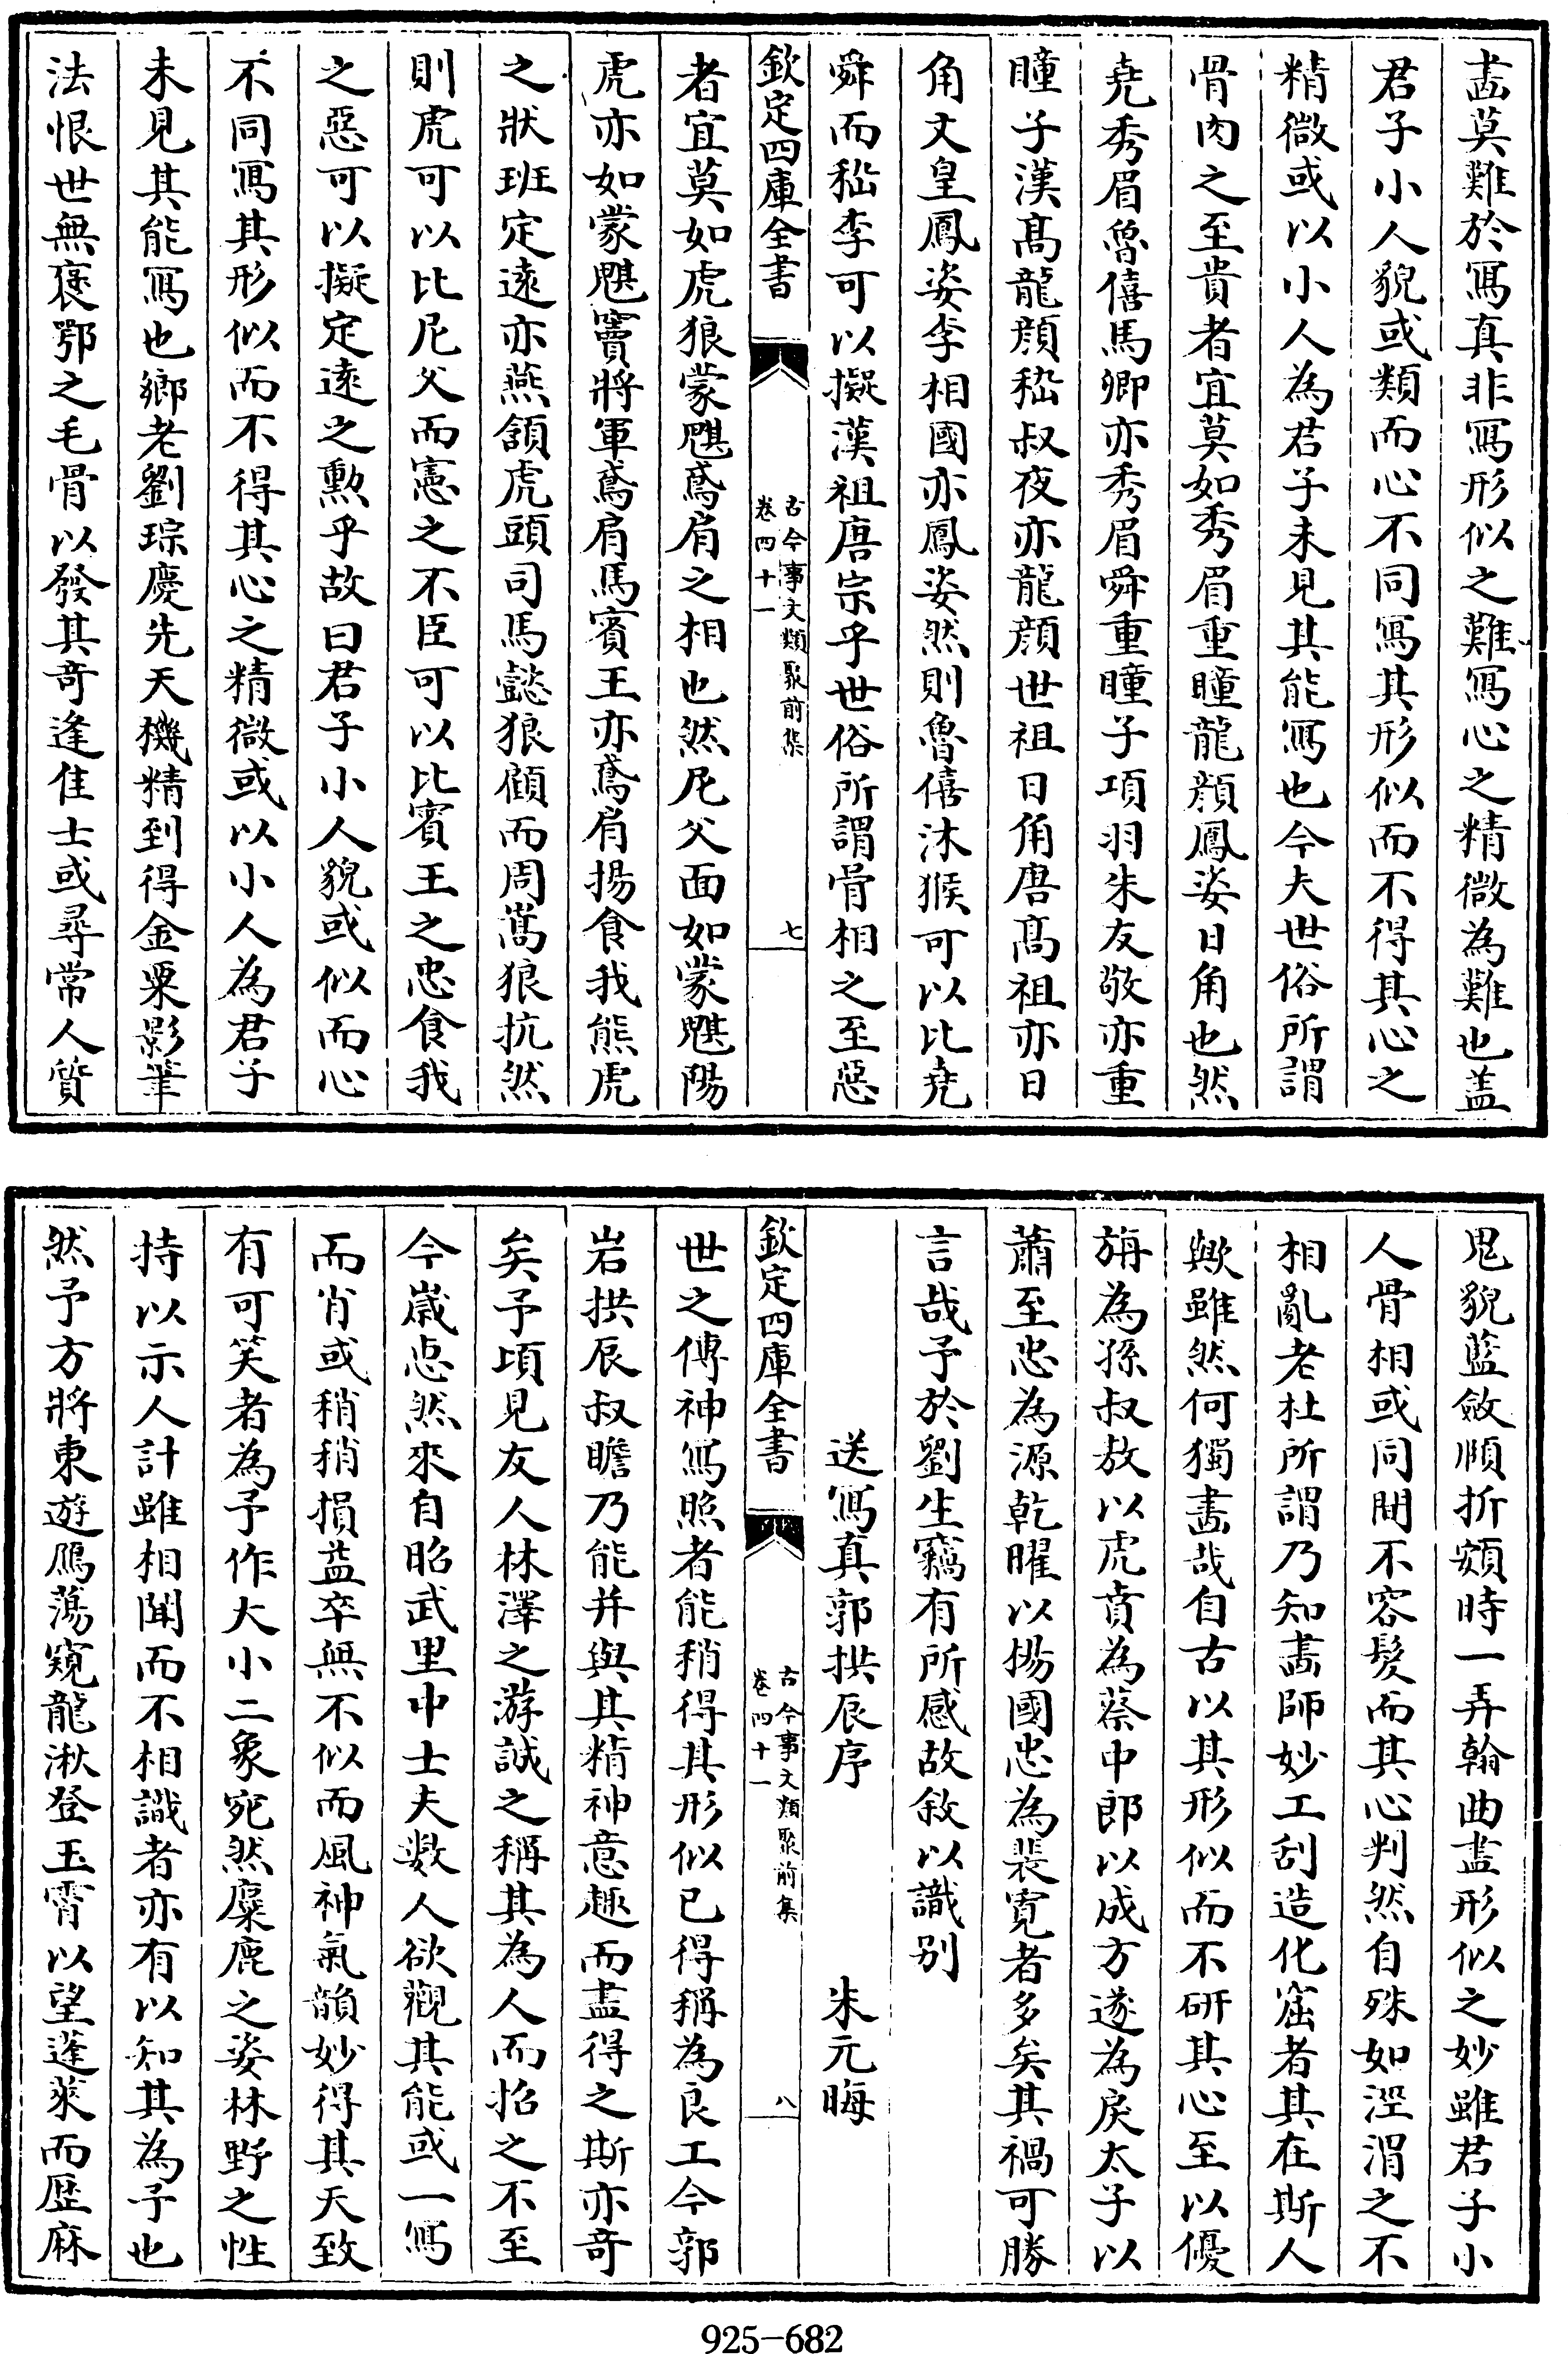 畫莫難於寫真非寫形似之難寫心之精微為難也盖
君子小人貌或類而心不同寫其形似而不得其心之
精微或以小人為君子未見其能寫也今夫世俗所謂
骨肉之至貴者宜莫如秀眉重瞳龍顔鳳姿日角也然
堯秀眉魯僖馬卿亦秀眉舜重瞳子項羽朱友敬亦重
瞳子漢髙龍顔嵇叔夜亦龍顔世祖日角唐髙祖亦日
角文皇鳳姿李相國亦鳳姿然則魯僖沐猴可以比堯
舜而嵇李可以擬漢祖唐宗乎世俗所謂骨相之至惡
欽定四庫全書
古今事文類聚前集
卷四十一
七
者宜莫如虎狼蒙魌鳶肩之相也然尼父面如蒙魌陽
虎亦如蒙魌竇將軍鳶肩馬賓王亦鳶肩揚食我熊虎
之狀班定遠亦燕頷虎頭司馬懿狼顧而周嵩狼抗然
則虎可以比尼父而憲之不臣可以比賓王之忠食我
之惡可以擬定遠之勲乎故曰君子小人貌或似而心
不同寫其形似而不得其心之精微或以小人為君子
未見其能寫也鄉老劉琮慶先天機精到得金粟影筆
法恨世無褒鄂之毛骨以發其竒逢佳士或尋常人質
鬼貌藍斂順折頞時一弄翰曲盡形似之妙雖君子小
人骨相或同間不容髮而其心判然自殊如涇渭之不
相亂老杜所謂乃知畫師妙工刮造化窟者其在斯人
歟雖然何獨畫哉自古以其形似而不研其心至以優
旃為孫叔敖以虎賁為蔡中郎以成方遂為戾太子以
蕭至忠為源乾曜以楊國忠為裴寛者多矣其禍可勝
言哉予於劉生竊有所感故敘以識别
送寫真郭拱辰序　朱元晦
欽定四庫全書
古今事文類聚前集
卷四十一
八
世之傳神寫照者能稍得其形似已得稱為良工今郭
岩拱辰叔瞻乃能并與其精神意趣而盡得之斯亦竒
矣予頃見友人林澤之游誠之稱其為人而招之不至
今嵗惠然來自昭武里中士夫數人欲觀其能或一寫
而肖或稍稍損益卒無不似而風神氣韻妙得其天致
有可笑者為予作大小二象宛然麋鹿之姿林野之性
持以示人計雖相聞而不相識者亦有以知其為予也
然予方將東遊鴈蕩窺龍湫登玉霄以望蓬萊而歴麻
925-682